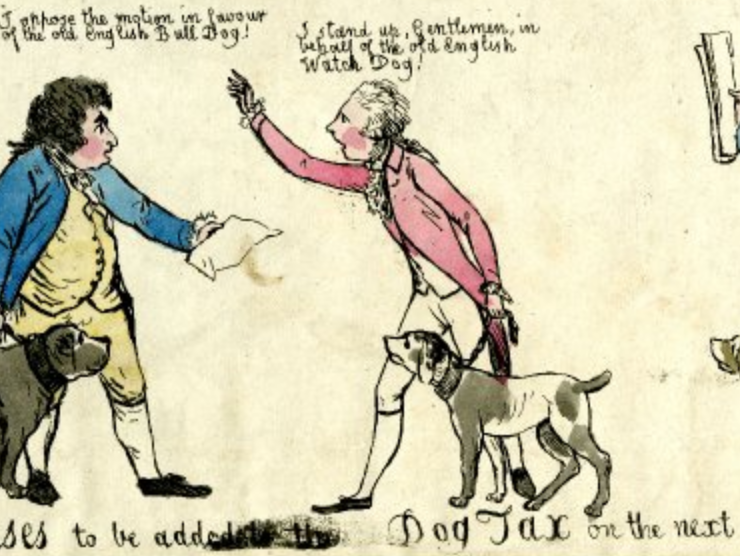 I oppose the motion in favour
of the old English Bull Dog!
I stand up, Gentlemen, in
behalf of the old English
Watch Dog!
to be added to the Dog Tax on the next